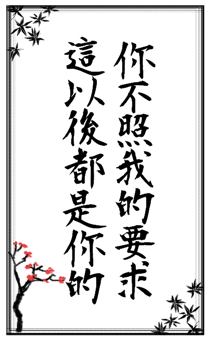 你不照我的要求
這以後都是你的